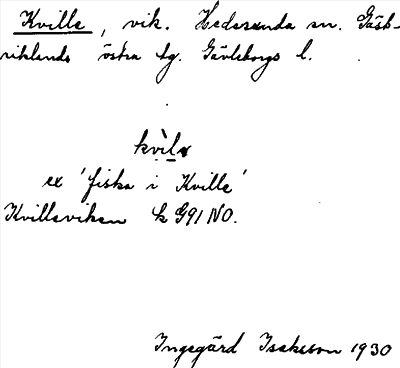 Kville, vik. Hedesunda sn. Gäst-
riklands östra hg. Gävleborgs l.
kvìlа
ex 'fiska i Kville'
Kvilleviken k G91 NO.
Ingegärd Isaksson 1930